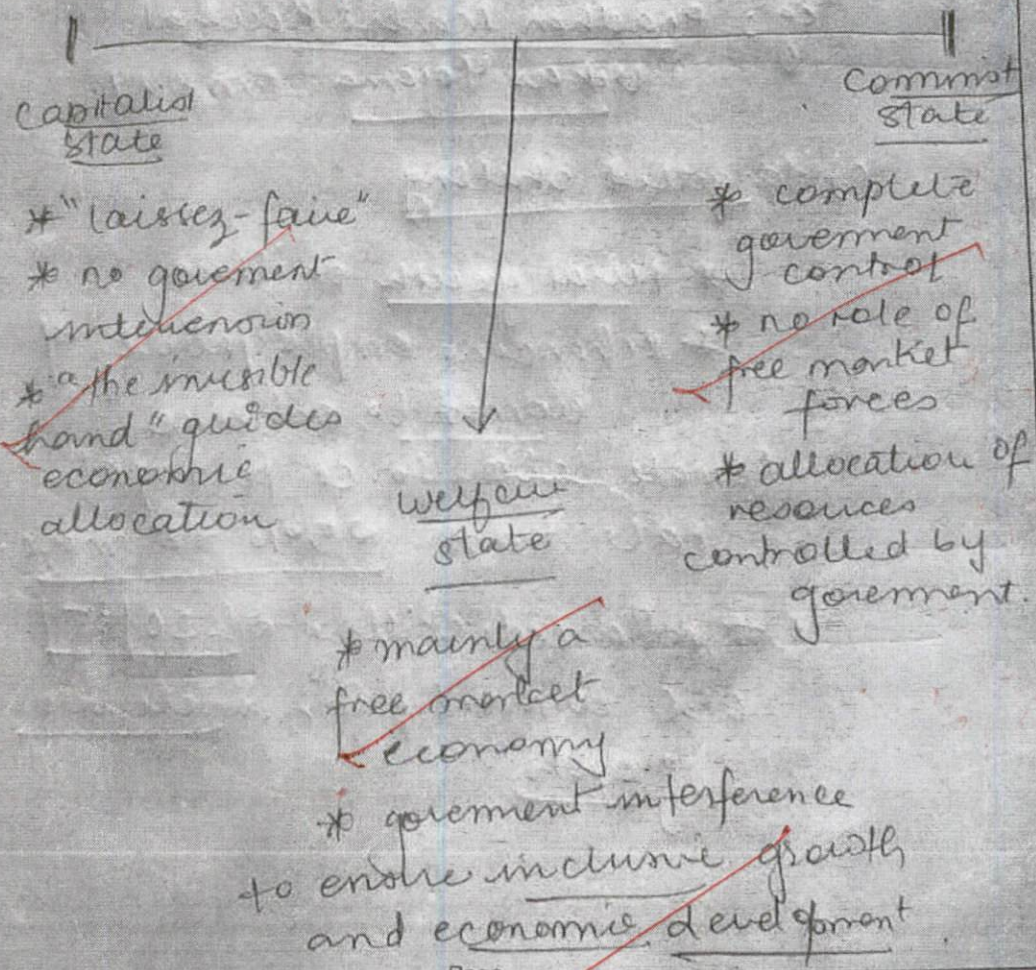 Capitalist
state
* "laissez-faire"
* no goverment
intervension
* "the invisible
hand" guides
economic
allocation
Commnist
state
* complete
goverment
control
* no role of
free market
forces
* allocation of
resouces
controlled by
goverment.
Welfare
state
* mainly a
free market
economy
* goverment interference
to ensure inclusive growth
and economic development